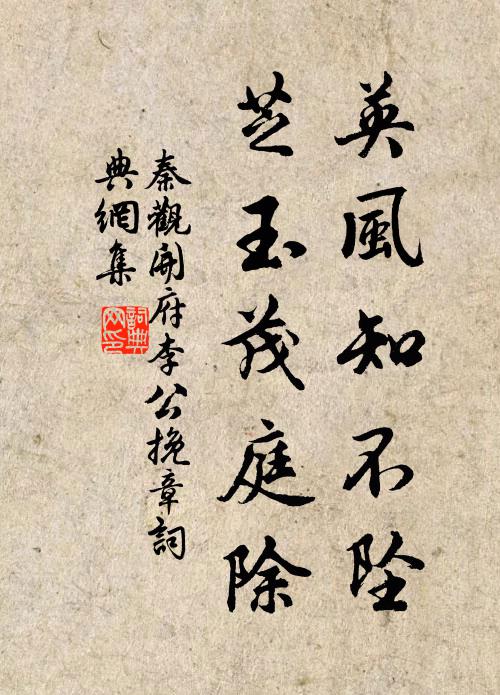 英風知不墜
芝玉茂庭除
秦觀開府李公挽章詞
典網集
詞典網印